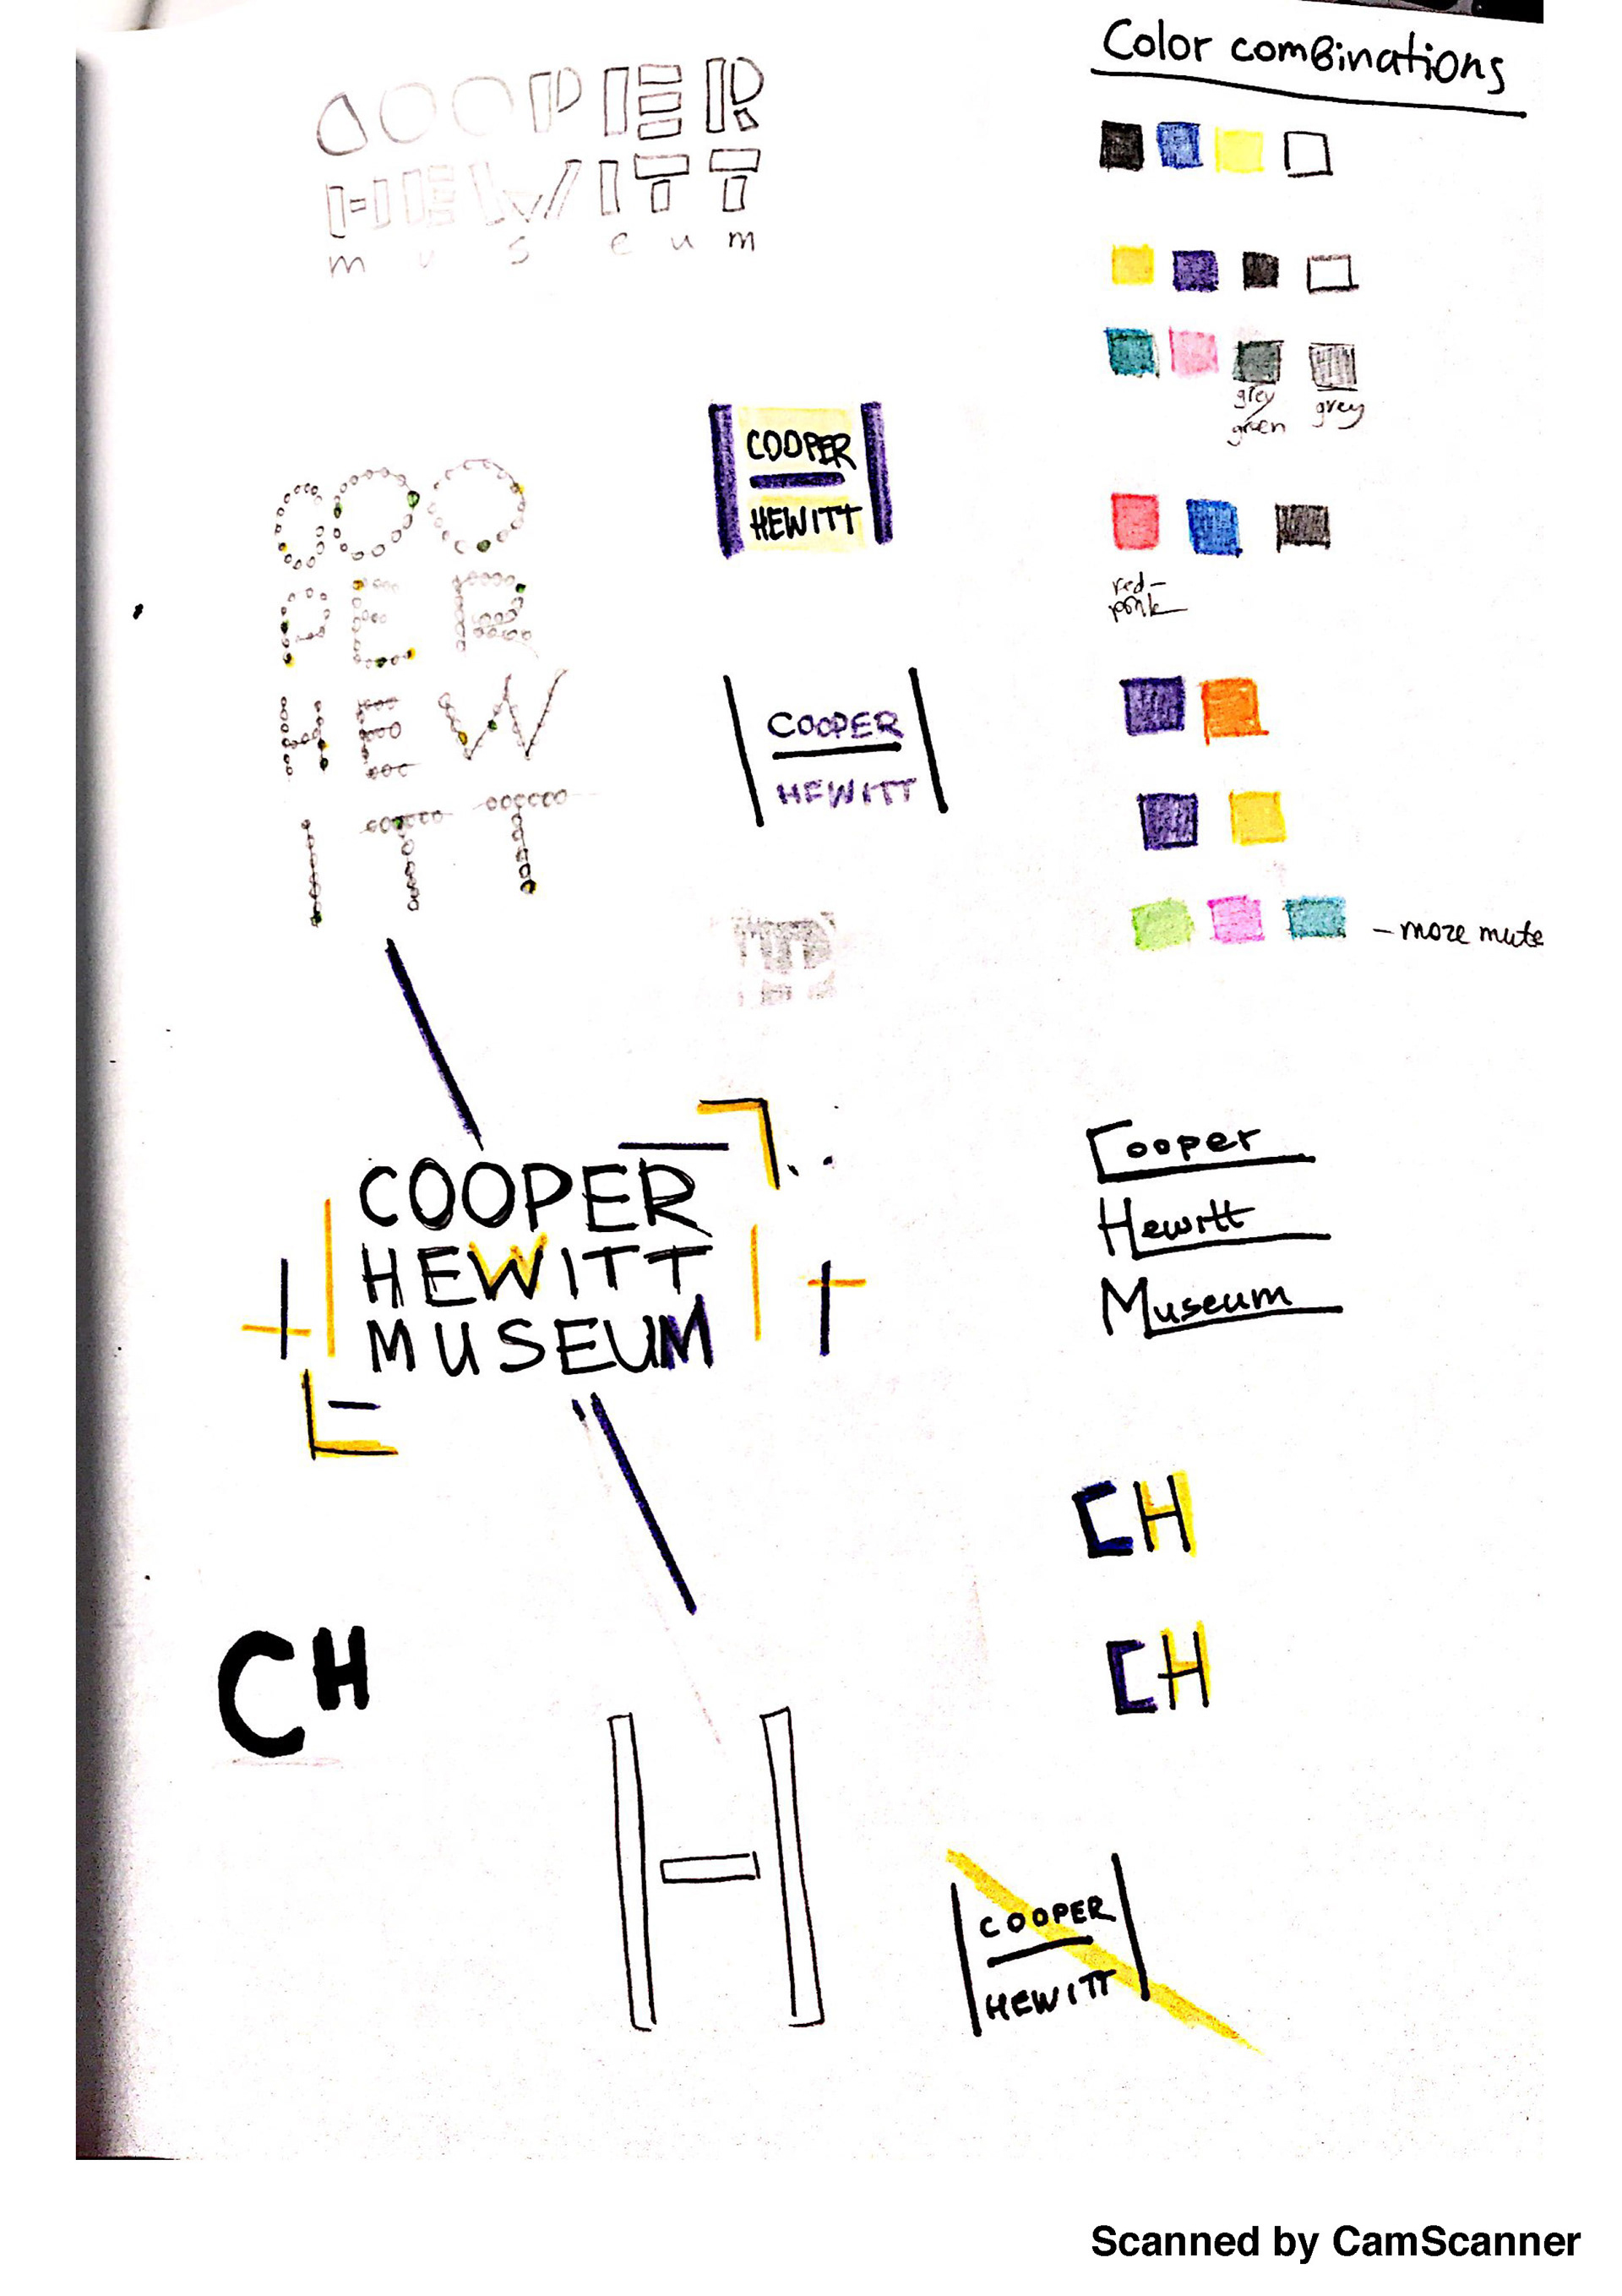 COOPER
HEWITT
museum
Color combinations
grey/
green
grey
COOPER
HEWITT
COO
PER
HEW
ITT
red-
pink
COOPER
HEWITT
- more mute
COOPER
HEWITT
MUSEUM
Cooper
Hewitt
Museum
CH
CH
CH
H
COOPER
HEWITT
Scanned by CamScanner